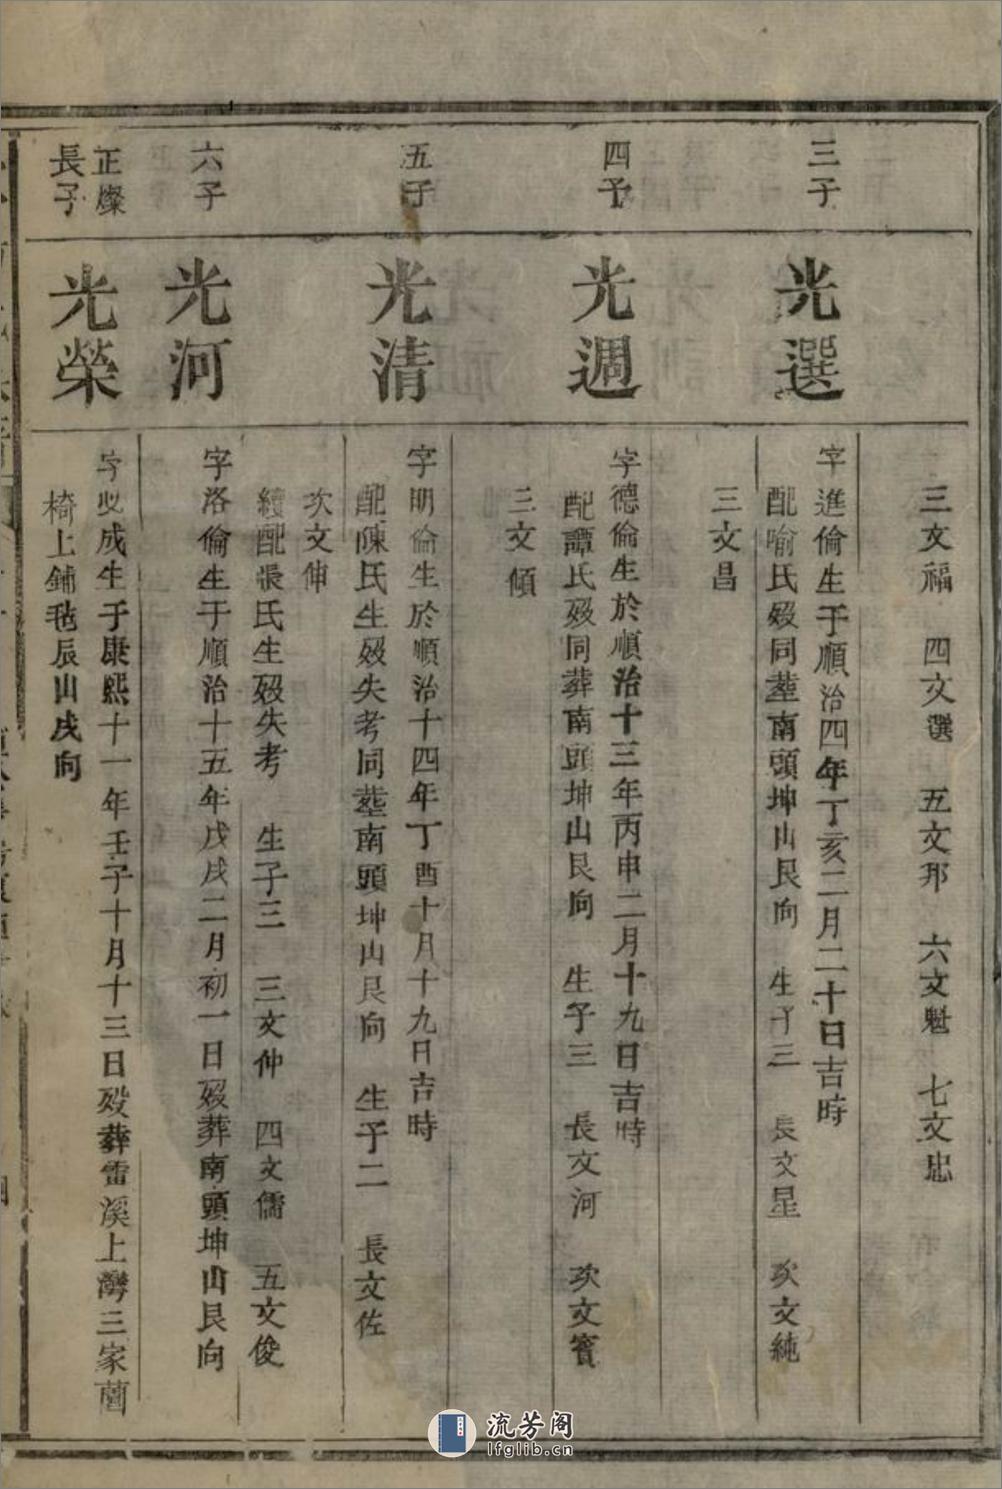 三文福 四文選 五文邦 六文魁 七文忠
三子
光選
字進倫生于順治四年丁亥二月二十日吉時
配喻氏歿同塟南頭坤山艮向 生子三 長文星 次文純
三文昌
四子
光週
字德倫生於順治十三年丙申二月十九日吉時
配譚氏歿同葬南頭坤山艮向 生子三 長文河 次文賓
三文傾
五子
光清
字明倫生於順治十四年丁酉十月十九日吉時
配陳氏生歿失考同塟南頭坤山艮向 生子二 長文佐
次文伸
續配張氏生歿失考 生子三 三文仲 四文儒 五文俊
六子
光河
字洛倫生于順治十五年戊戌二月初一日歿葬南頭坤山艮向
正燦
長子
光榮
字必成生于康熙十一年壬子十月十三日歿葬雷溪上灣三家
椅上鋪毡辰山戌向
流芳阁
lfglib.cn